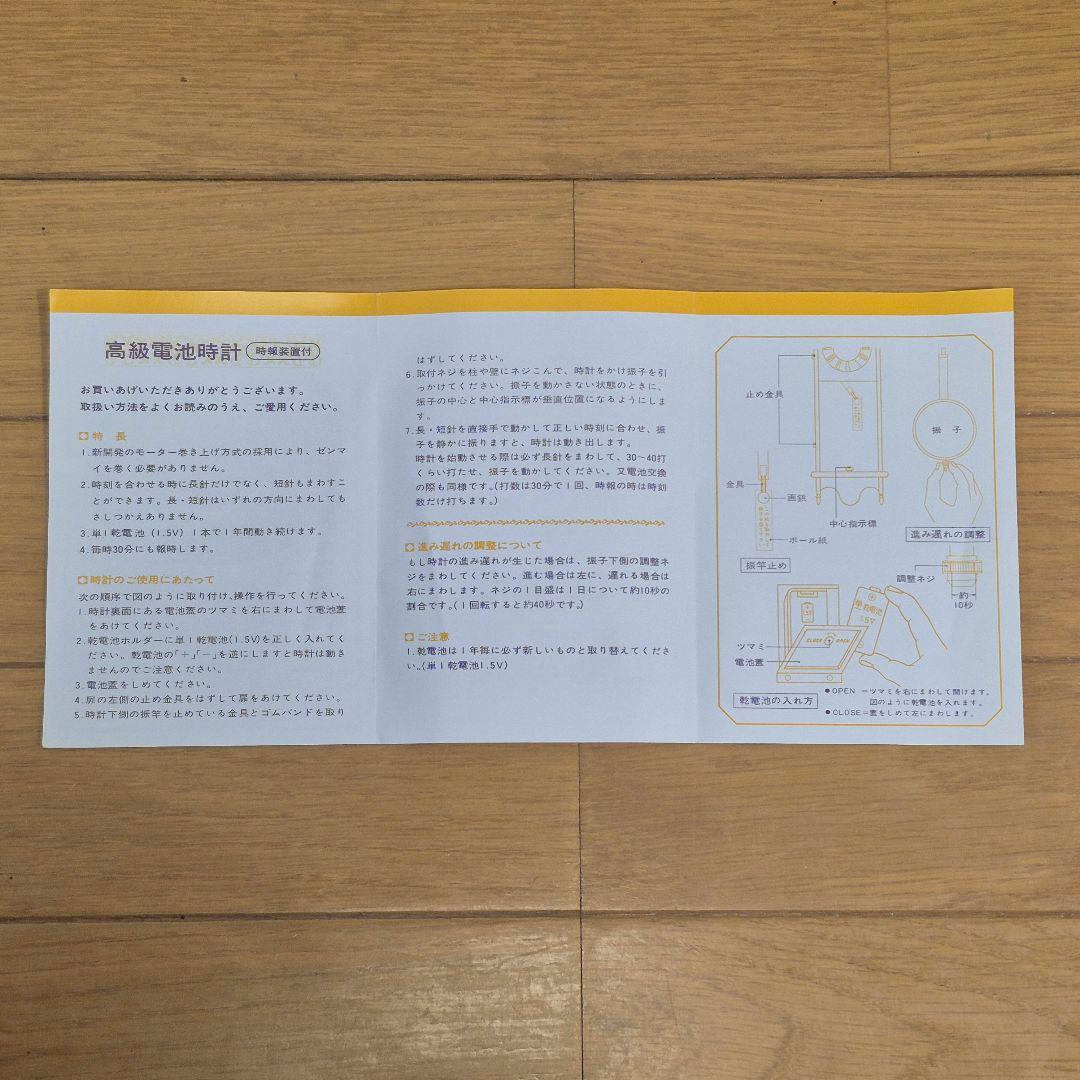 高級電池時計 時報装置付
お買いあげいただきありがとうございます。
取扱い方法をよくお読みのうえ、ご愛用ください。
特 長
1.新開発のモーター巻き上げ方式の採用により、ゼンマ
イを巻く必要がありません。
2.時刻を合わせる時に長針だけでなく、短針もまわすこ
とができます。長・短針はいずれの方向にまわしても
さしつかえありません。
3.単1乾電池(1.5V)1本で1年間動き続けます。
4.毎時30分にも報時します。
時計のご使用にあたって
次の順序で図のように取り付け、操作を行ってください。
1.時計裏面にある電池蓋のツマミを右にまわして電池蓋
をあけてください。
2.乾電池ホルダーに単1乾電池(1.5V)を正しく入れてく
ださい。乾電池の「+」「−」を逆にしますと時計は動き
ませんのでご注意ください。
3.電池蓋をしめてください。
4.扉の左側の止め金具をはずして扉をあけてください。
5.時計下側の振竿を止めている金具とゴムバンドを取り
はずしてください。
6.取付ネジを柱や壁にネジこんで、時計をかけ振子を引
っかけてください。振子を動かさない状態のときに、
振子の中心と中心指示標が垂直位置になるようにしま
す。
7.長・短針を直接手で動かして正しい時刻に合わせ、振
子を静かに振りますと、時計は動き出します。
時計を始動させる際は必ず長針をまわして、30〜40打
くらい打たせ、振子を動かしてください。又電池交換
の際も同様です。(打数は30分で1回、時報の時は時刻
数だけ打ちます。)
進み遅れの調整について
もし時計の進み遅れが生じた場合は、振子下側の調整ネ
ジをまわしてください。進む場合は左に、遅れる場合は
右にまわします。ネジの1目盛は1日について約10秒の
割合です。(1回転すると約40秒です。)
ご注意
1.乾電池は1年毎に必ず新しいものと取り替えてくださ
い。(単1乾電池1.5V)
止め金具
振 子
金具
画鋲
中心指示標
ボール紙
振竿止め
進み遅れの調整
調整ネジ
約
10秒
単1乾電池
1.5V
CLOSE OPEN
ツマミ
電池蓋
乾電池の入れ方
●OPEN =ツマミを右にまわして開けます。
図のように乾電池を入れます。
●CLOSE=蓋をしめて左にまわします。